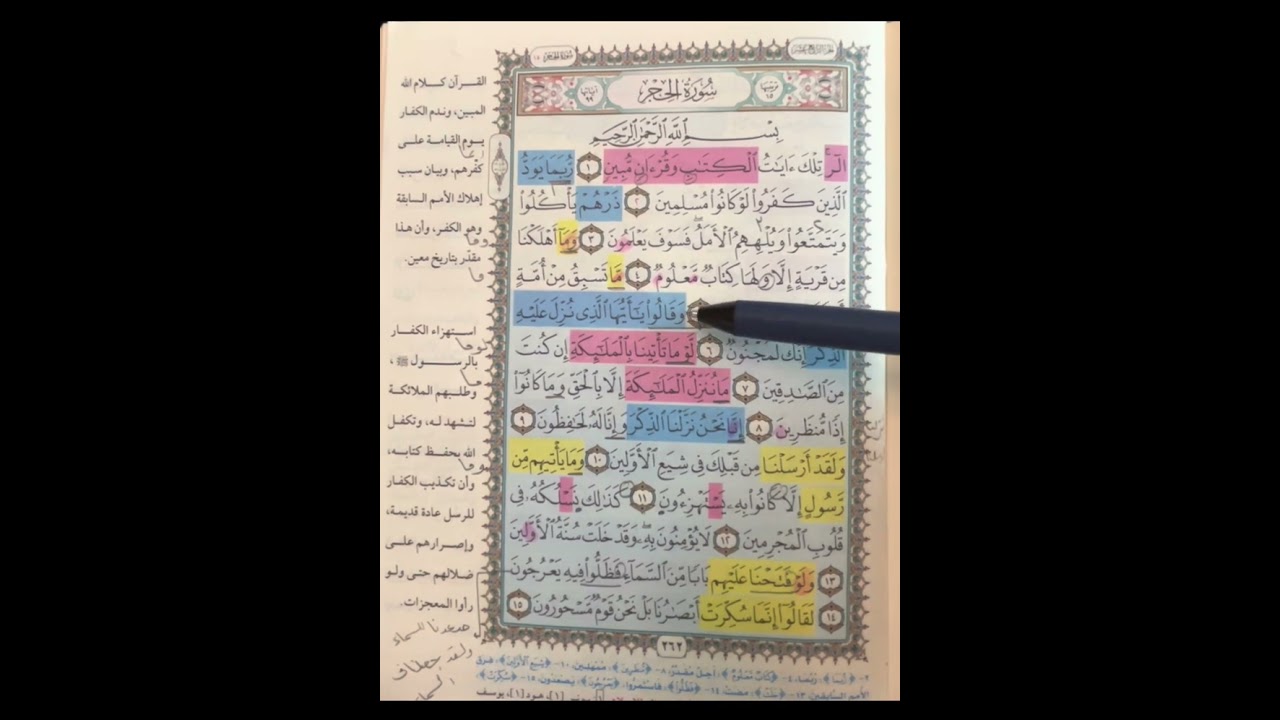 سُورَةُ الحِجْرِ
بِسْمِ ٱللَّهِ ٱلرَّحْمَٰنِ ٱلرَّحِيمِ
الٓر ۚ تِلْكَ ءَايَٰتُ ٱلْكِتَٰبِ وَقُرْءَانٍ مُّبِينٍ ١ رُّبَمَا يَوَدُّ
ٱلَّذِينَ كَفَرُوا۟ لَوْ كَانُوا۟ مُسْلِمِينَ ٢ ذَرْهُمْ يَأْكُلُوا۟
وَيَتَمَتَّعُوا۟ وَيُلْهِهِمُ ٱلْأَمَلُ ۖ فَسَوْفَ يَعْلَمُونَ ٣ وَمَآ أَهْلَكْنَا
مِن قَرْيَةٍ إِلَّا وَلَهَا كِتَابٌ مَّعْلُومٌ ٤ مَّا تَسْبِقُ مِنْ أُمَّةٍ
وَقَالُوا۟ يَٰٓأَيُّهَا ٱلَّذِى نُزِّلَ عَلَيْهِ
ٱلذِّكْرُ إِنَّكَ لَمَجْنُونٌ ٦ لَّوْ مَا تَأْتِينَا بِٱلْمَلَٰٓئِكَةِ إِن كُنتَ
مِنَ ٱلصَّٰدِقِينَ ٧ مَا نُنَزِّلُ ٱلْمَلَٰٓئِكَةَ إِلَّا بِٱلْحَقِّ وَمَا كَانُوٓا۟
إِذًا مُّنظَرِينَ ٨ إِنَّا نَحْنُ نَزَّلْنَا ٱلذِّكْرَ وَإِنَّا لَهُۥ لَحَٰفِظُونَ ٩
وَلَقَدْ أَرْسَلْنَا مِن قَبْلِكَ فِى شِيَعِ ٱلْأَوَّلِينَ ١٠ وَمَا يَأْتِيهِم مِّن
رَّسُولٍ إِلَّا كَانُوا۟ بِهِۦ يَسْتَهْزِءُونَ ١١ كَذَٰلِكَ نَسْلُكُهُۥ فِى
قُلُوبِ ٱلْمُجْرِمِينَ ١٢ لَا يُؤْمِنُونَ بِهِۦ ۖ وَقَدْ خَلَتْ سُنَّةُ ٱلْأَوَّلِينَ
١٣ وَلَوْ فَتَحْنَا عَلَيْهِم بَابًا مِّنَ ٱلسَّمَآءِ فَظَلُّوا۟ فِيهِ يَعْرُجُونَ
١٤ لَقَالُوٓا۟ إِنَّمَا سُكِّرَتْ أَبْصَٰرُنَا بَلْ نَحْنُ قَوْمٌ مَّسْحُورُونَ ١٥
٢٦٢
القرآن كلام الله
المبين، وندم الكفار
يوم القيامة على
كفرهم، وبيان سبب
إهلاك الأمم السابقة
وهو الكفر، وأن هذا
مقدّر بتاريخ معين.
استهزاء الكفار
بالرسول ﷺ،
وطلبهم الملائكة
لتشهد له، وتكفل
الله بحفظ كتابه،
وأن تكذيب الكفار
للرسل عادة قديمة،
وإصرارهم على
ضلالهم حتى ولو
رأوا المعجزات